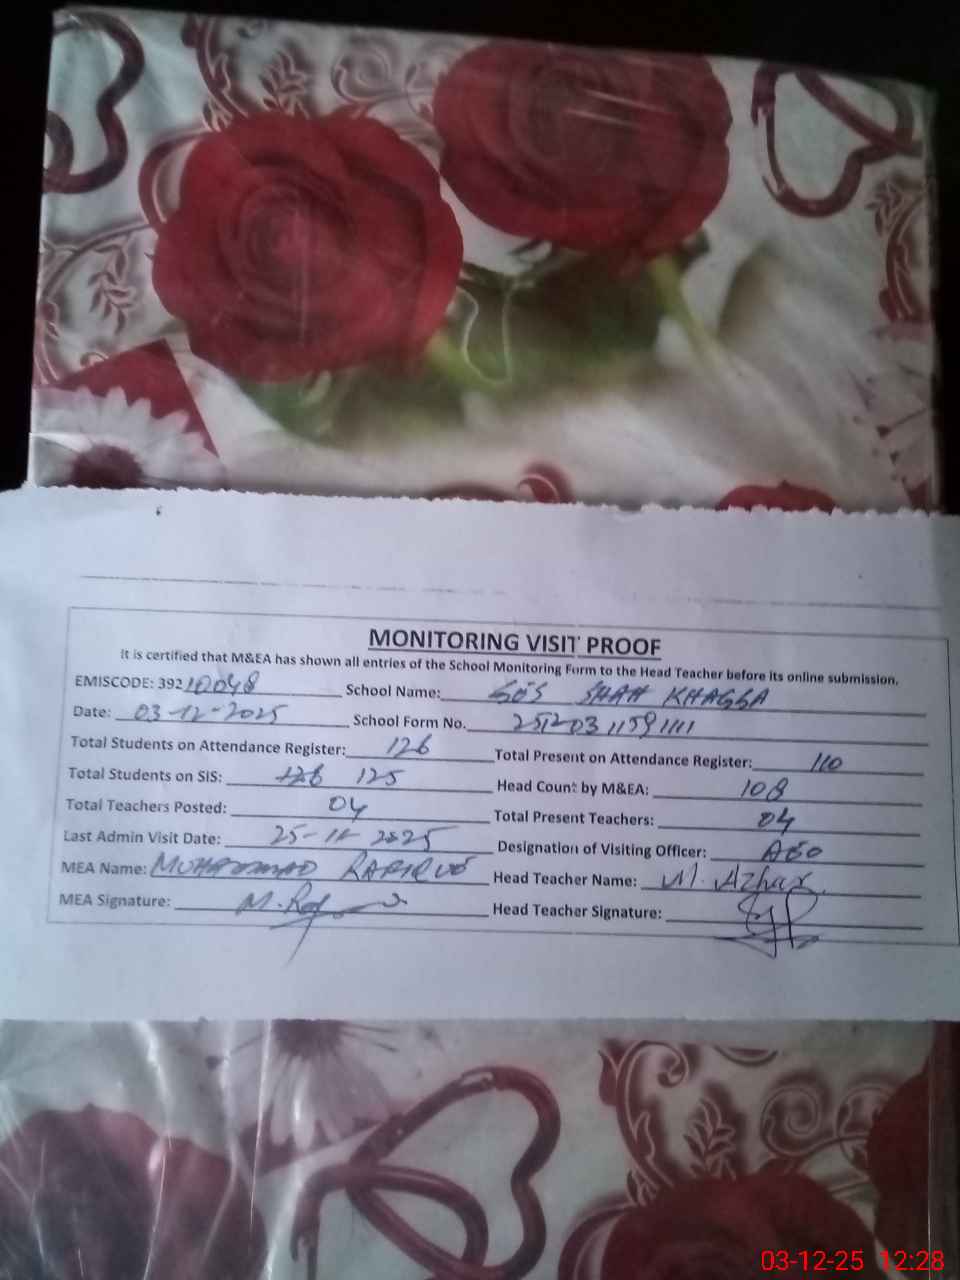 MONITORING VISIT PROOF
It is certified that M&EA has shown all entries of the School Monitoring Form to the Head Teacher before its online submission.
EMISCODE: 39210048 School Name: SHAH KHAGGA
Date: 03-12-2025 School Form No.
Total Students on Attendance Register: 126 Total Present on Attendance Register: 110
Total Students on SIS: 126 125 Head Count by M&EA: 108
Total Teachers Posted: 04 Total Present Teachers: 04
Last Admin Visit Date: 25-11-2025 Designation of Visiting Officer: AEO
MEA Name: MUHAMMAD Head Teacher Name: M. Azhar
MEA Signature: Head Teacher Signature:
03-12-25 12:28